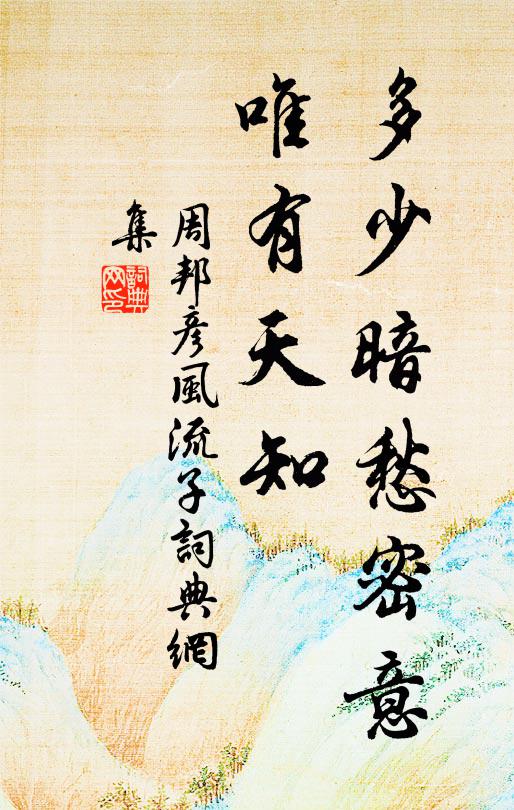 多少暗愁密意
唯有天知
周邦彦風流子詞典網
集
詞典
网印